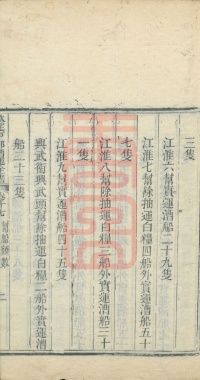 三隻
江淮六幫實運漕船二十九隻
江淮七幫除抽運白糧四船外實運漕船五十
七隻
江淮八幫除抽運白糧三船外實運漕船三十
一隻
江淮九幫實運漕船四十五隻
興武衛興武頭幫除抽運白糧二船外實運漕
船二十三隻
幫船額數